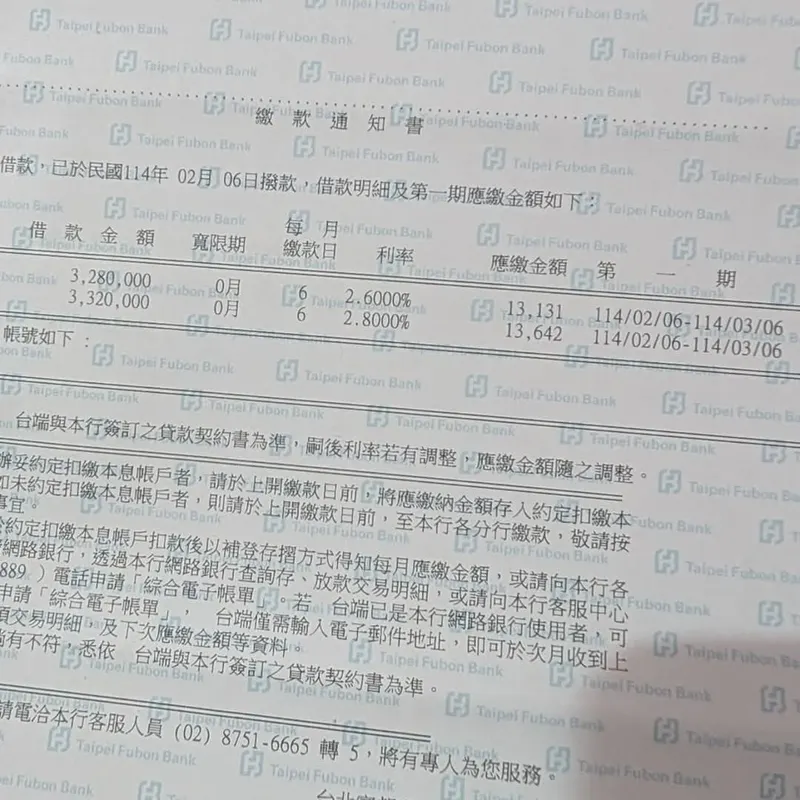 繳款通知書
借款，已於民國114年 02月 06日撥款，借款明細及第一期應繳金額如下：
借款金額 寬限期 每月繳款日 利率 應繳金額 第一期
3,280,000 0月 6 2.6000% 13,131 114/02/06-114/03/06
3,320,000 0月 6 2.8000% 13,642 114/02/06-114/03/06
帳號如下：
台端與本行簽訂之貸款契約書為準，嗣後利率若有調整，應繳金額隨之調整。
辦妥約定扣繳本息帳戶者，請於上開繳款日前，將應繳納金額存入約定扣繳本
如未約定扣繳本息帳戶者，則請於上開繳款日前，至本行各分行繳款，敬請按
事宜。
於約定扣繳本息帳戶扣款後以補登存摺方式得知每月應繳金額，或請向本行各
網路銀行，透過本行網路銀行查詢存、放款交易明細，或請向本行客服中心
889 ）電話申請「綜合電子帳單」。若 台端已是本行網路銀行使用者，可
申請「綜合電子帳單」， 台端僅需輸入電子郵件地址，即可於次月收到上
項交易明細，及下次應繳金額等資料。
倘有不符，悉依 台端與本行簽訂之貸款契約書為準。
請電洽本行客服人員 (02) 8751-6665 轉 5，將有專人為您服務。
台北富邦
Taipei Fubon Bank